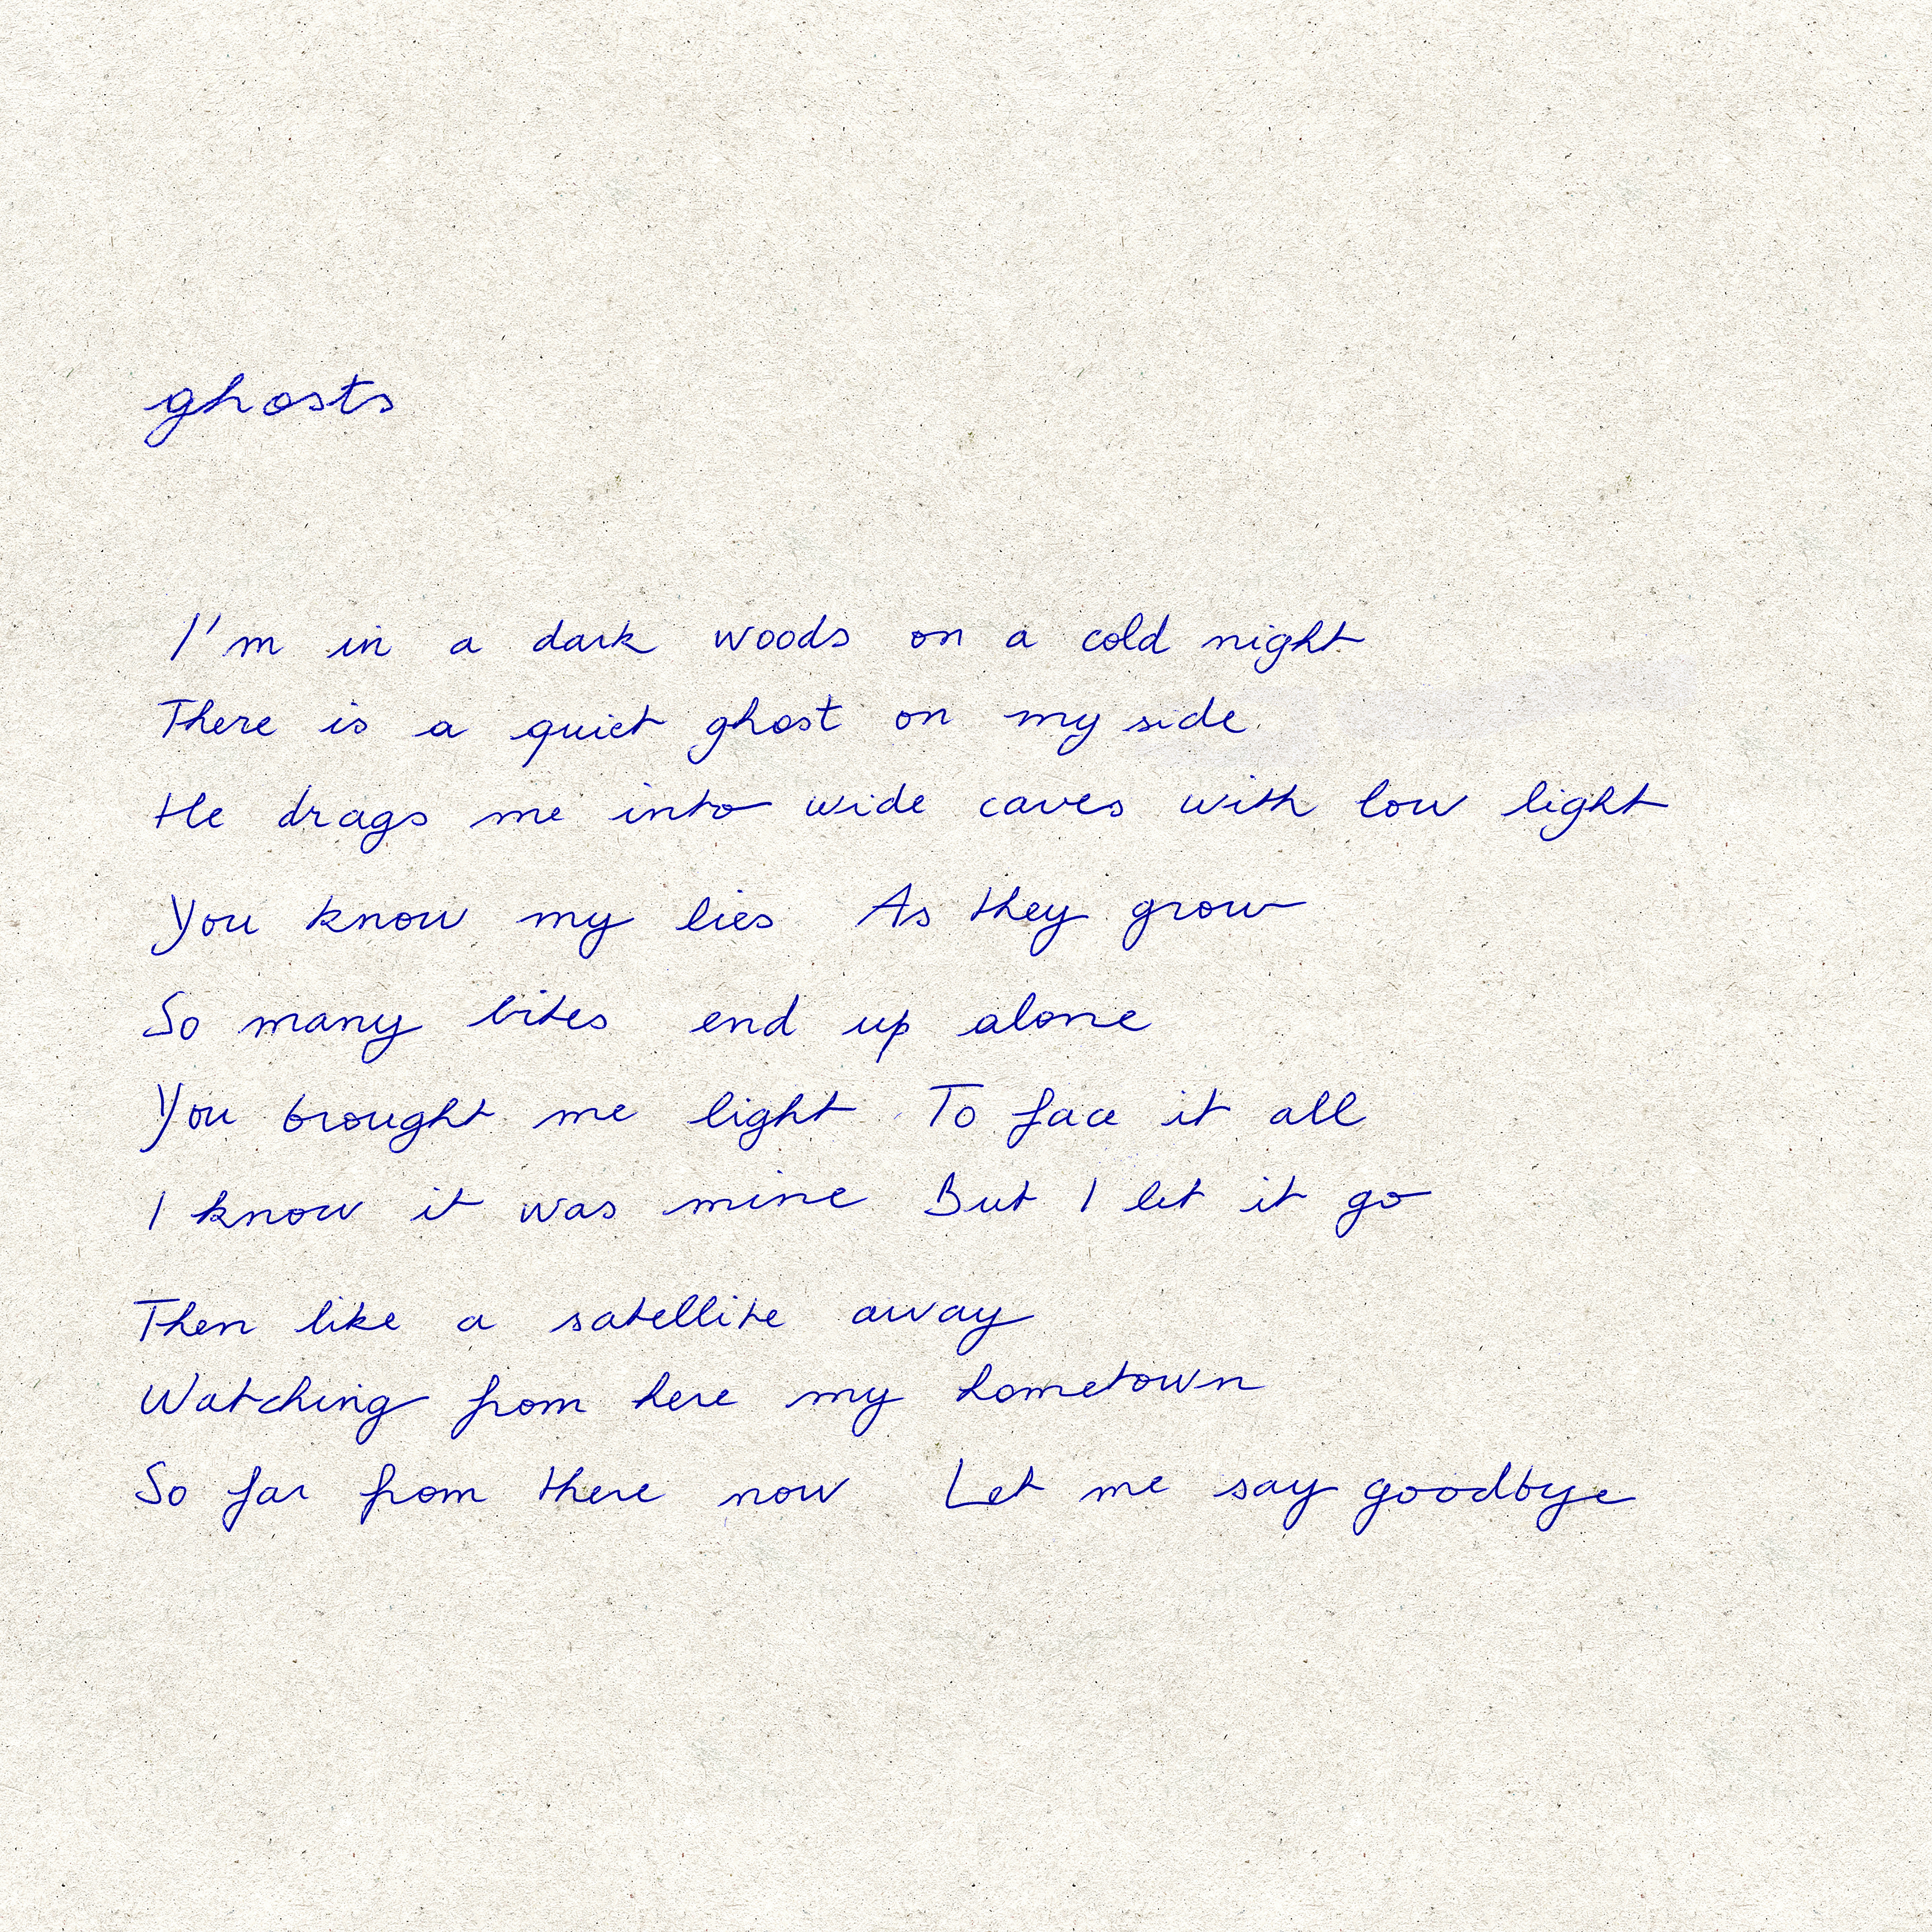 ghosts
I'm in a dark woods on a cold night
There is a quiet ghost on my side
He drags me into wide caves with low light
You know my lies As they grow
So many bites end up alone
You brought me light To face it all
I know it was mine But I let it go
Then like a satellite away
Watching from here my hometown
So far from there now Let me say goodbye